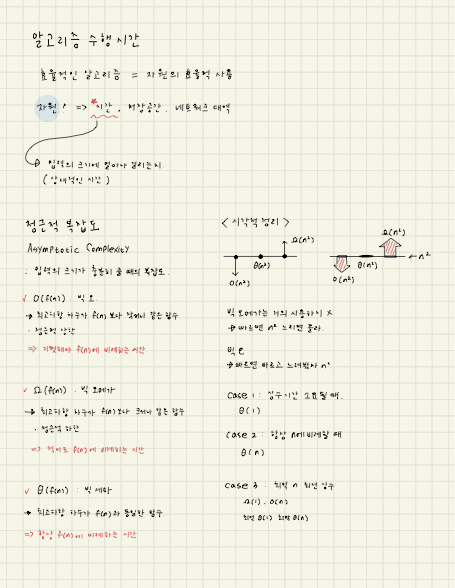 알고리즘 수행시간
효율적인 알고리즘 = 자원의 효율적 사용
자원! => *시간, 저장공간, 네트워크 대역
입력의 크기에 얼마나 걸리는지.
(상대적인 시간)
점근적 복잡도
Asymptotic Complexity
. 입력의 크기가 충분히 클 때의 복잡도.
✓ O(f(n)) : 빅 오.
→ 최고차항 차수가 f(n) 보다 작거나 같은 함수
. 점근적 상한
=> 기껏해야 f(n)에 비례하는 시간
✓ Ω(f(n)) : 빅 오메가
→ 최고차항 차수가 f(n)보다 크거나 같은 함수
. 점근적 하한
=> 적어도 f(n)에 비례하는 시간
✓ θ(f(n)) : 빅 세타
→ 최고차항 차수가 f(n)과 동일한 함수
=> 항상 f(n)에 비례하는 시간
< 시각적 정리 >
Ω(n²)
θ(n²)
O(n²)
Ω(n²)
← n²
θ(n²)
O(n²)
빅 오메가는 거의 사용하지 X
→ 빠르면 n² 느리면 몰라.
빅
→ 빠르면 빠르고 느려봤자 n²
case 1 : 상수시간 소요될 때.
θ(1)
case 2 : 항상 n에 비례할 때
θ(n)
case 3 : 최악 n 최선 상수
Ω(1), O(n)
최선 θ(1) 최악 θ(n)